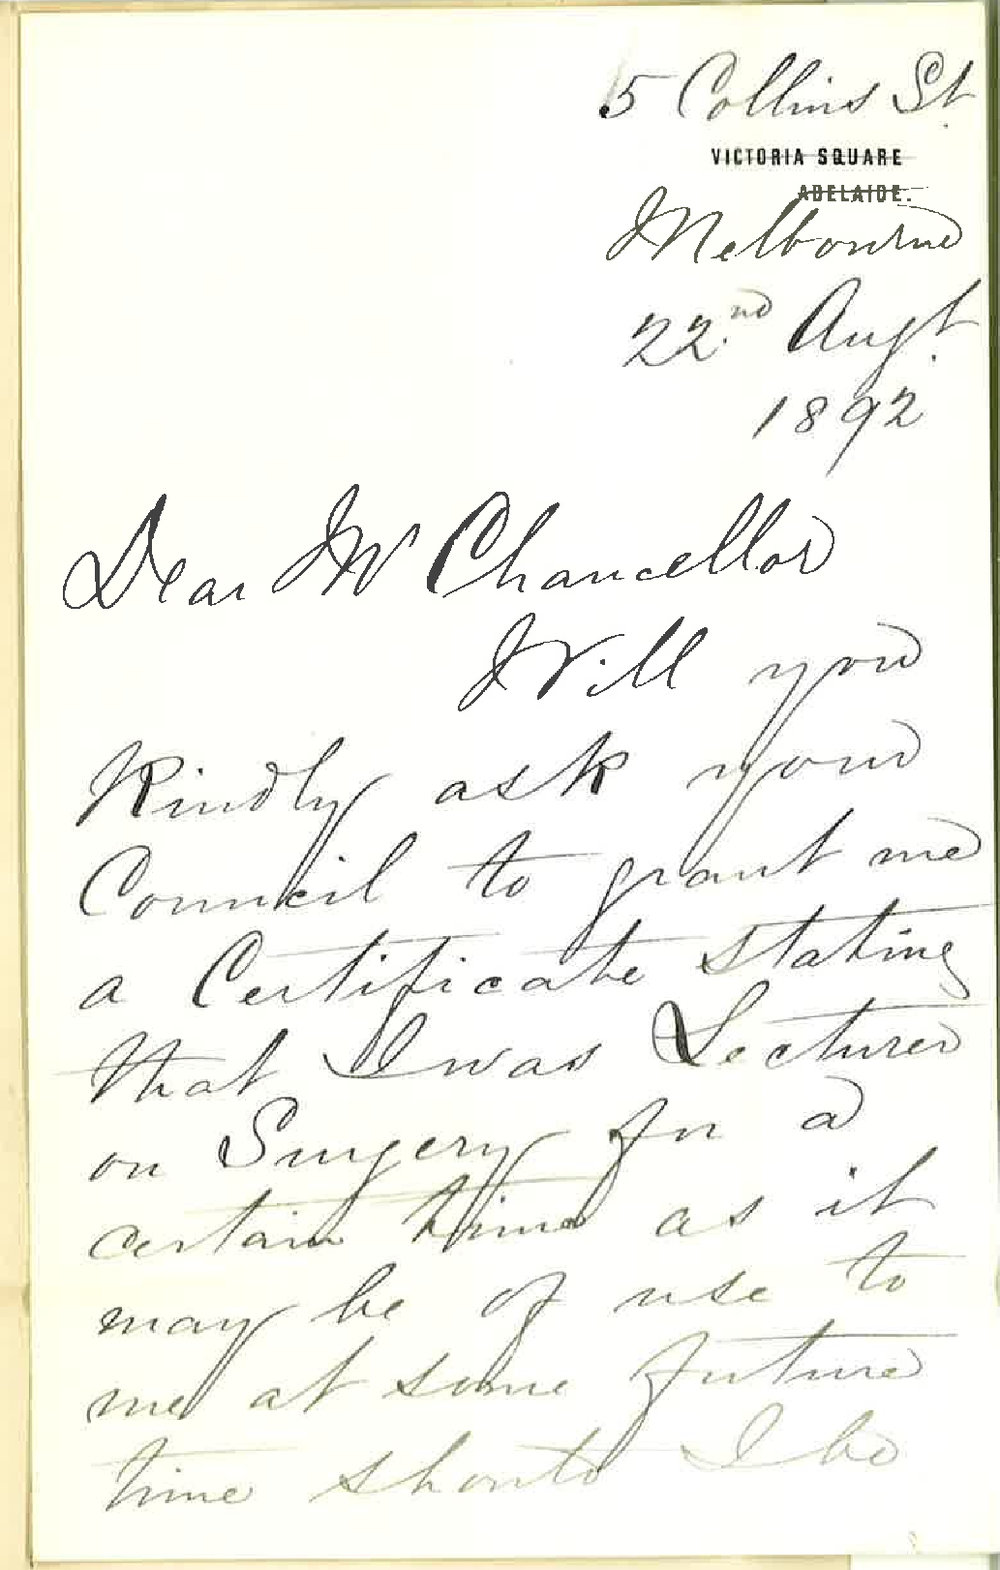 5 Collins St.
VICTORIA SQUARE
ADELAIDE.
Melbourne
22.nd Augt.
1892
Dear Mr Chancellor
Will you
Kindly ask your
Council to grant me
a Certificate stating
that I was Lecturer
on Surgery for a
certain time as it
may be of use to
me at some future
time should I be